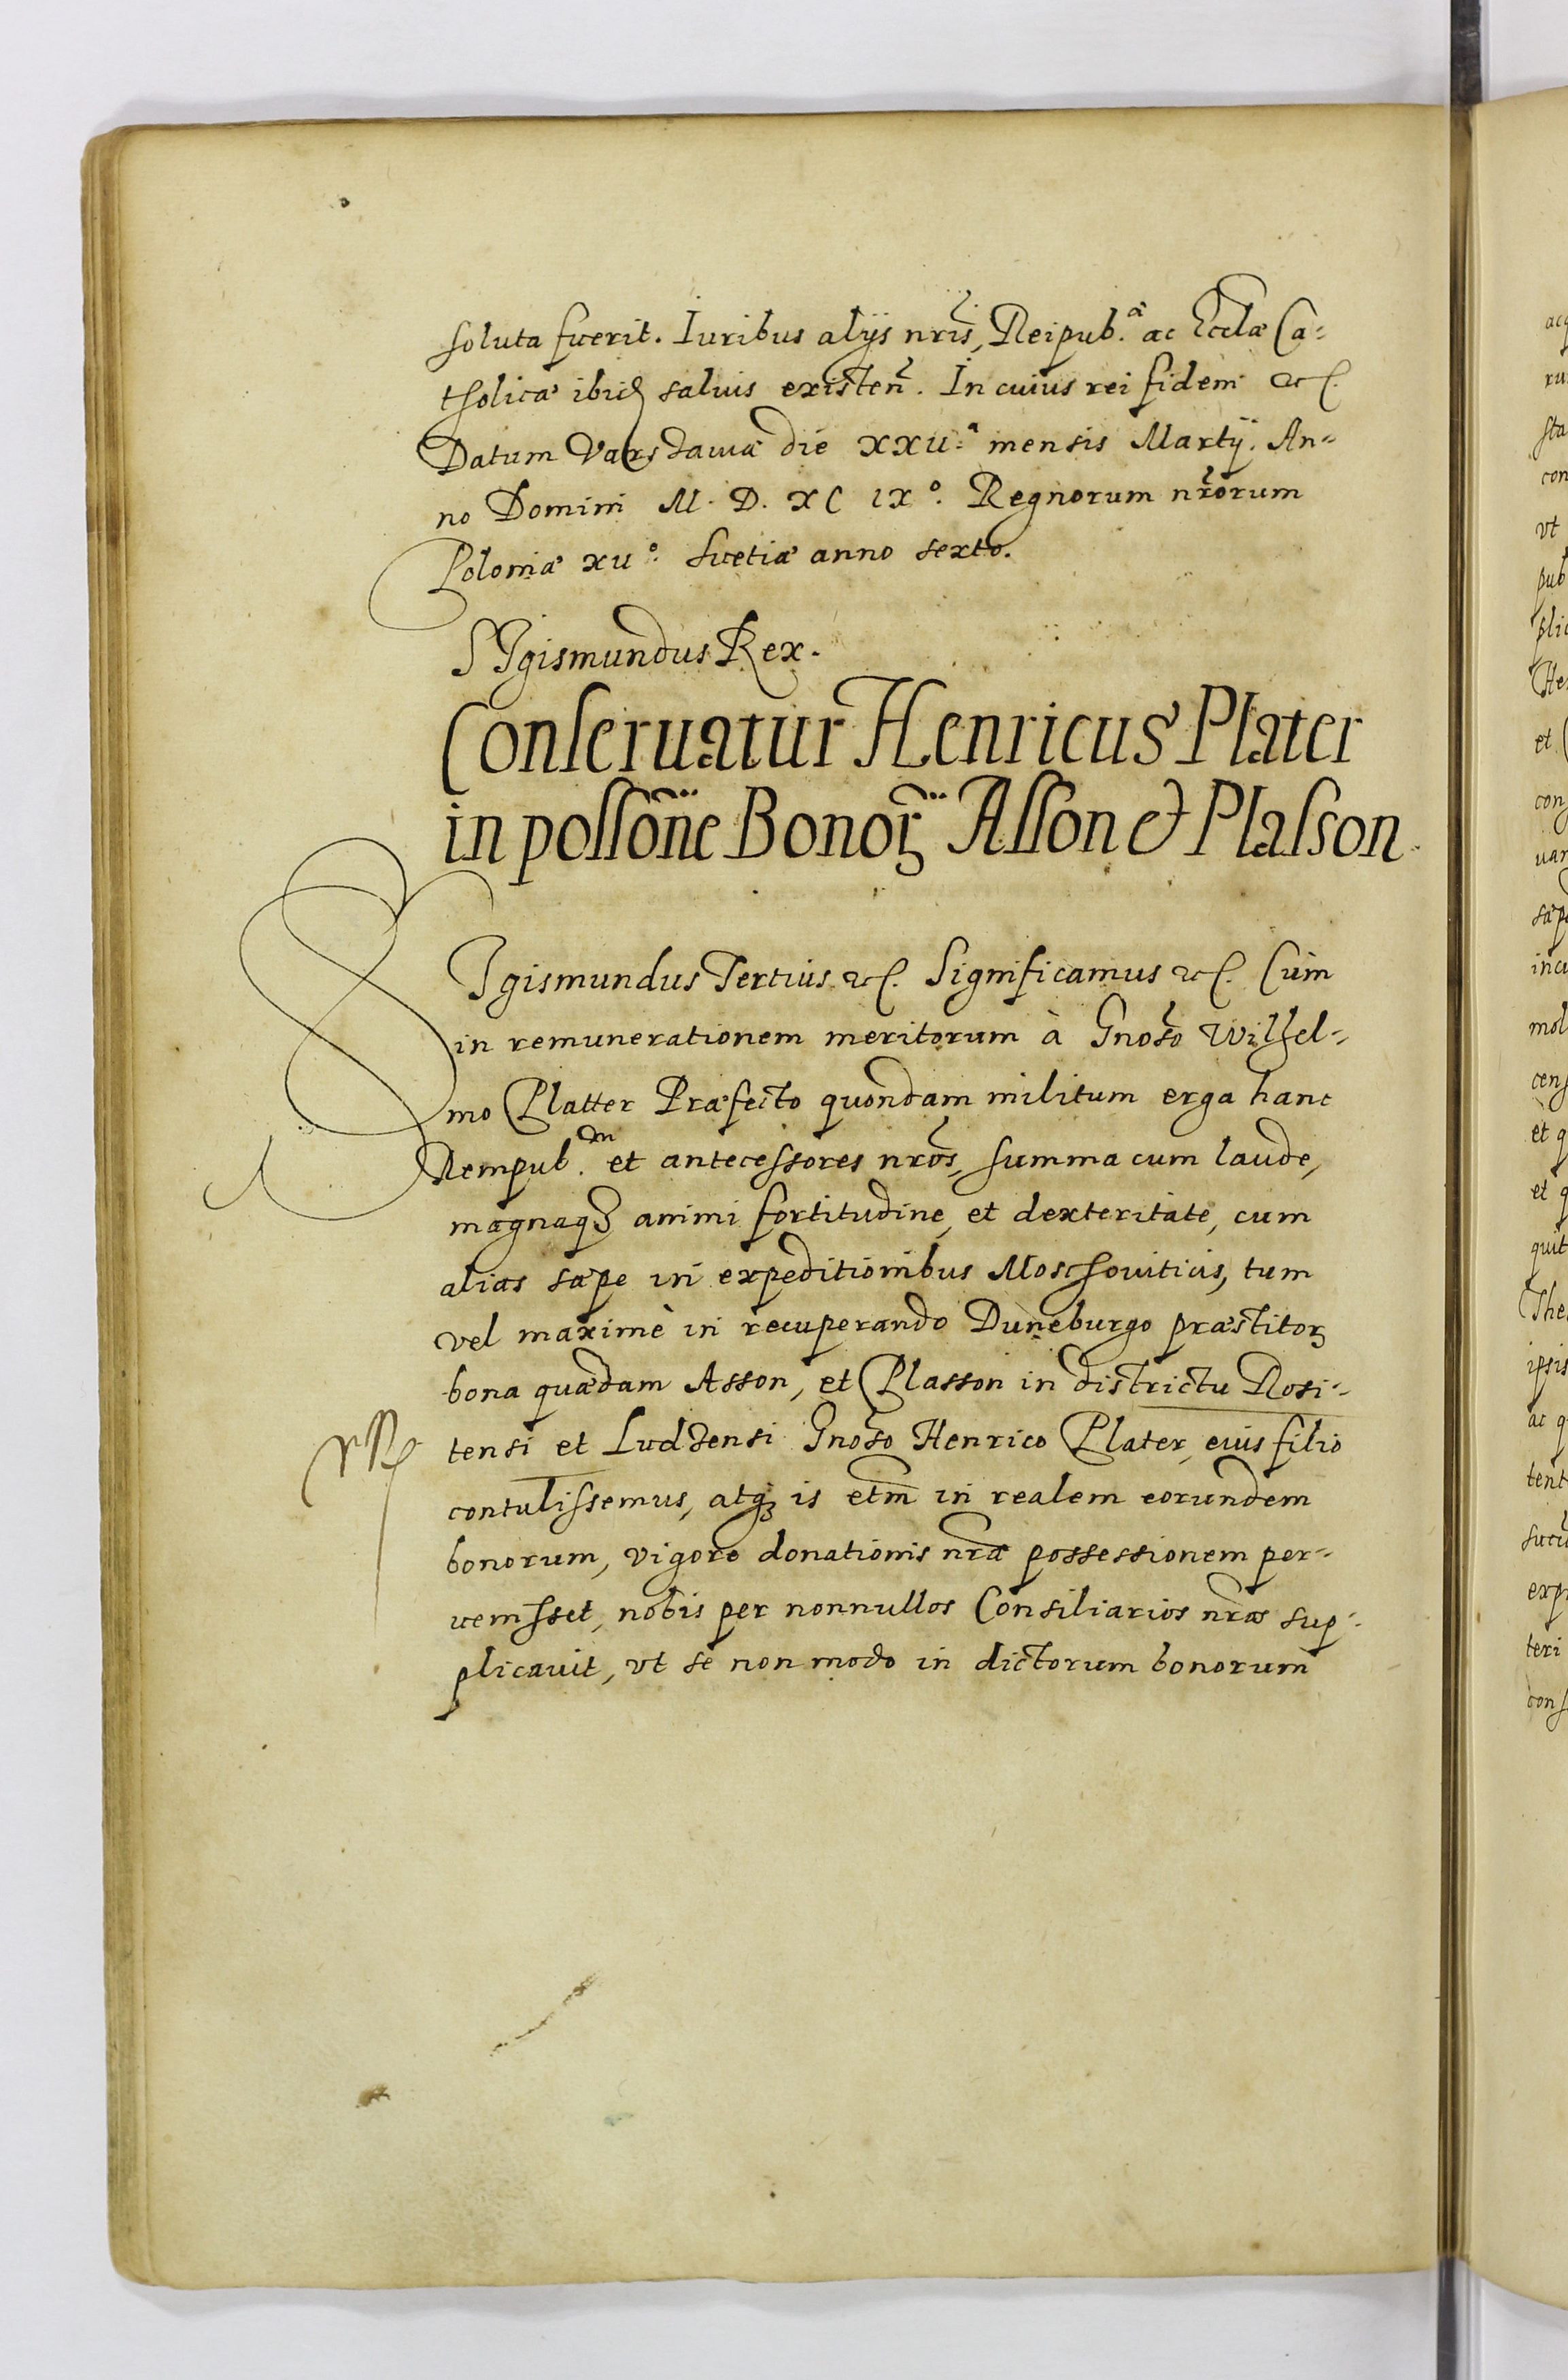 soluta fuerit. Iuribus alijs nris, Reipub.ae ac Eccłæ Ca=
tholicæ ibid saluis existen. In cuius rei fidem etc.
Datum Varschauiæ die XXII.a mensis Martij. An=
no Domini M. D. XC IX°. Regnorum nrorum
Poloniæ XII° Suetiæ anno sexto.
SIgismundus Rex.
Conseruatur Henricus Plater
in possone Bonor Asson & Plasson.
SIgismundus Tertius etc. Significamus etc. Cum
in remunerationem meritorum à Gnoso Wilhel=
mo Platter Præfecto quondam militum erga hanc
Rempub.m et antecessores nros, summa cum laude,
magnaq3 animi fortitudine, et dexteritate, cum
alias sæpe in expeditionibus Moschouiticis, tum
vel maximè in recuperando Duneburgo præstitor
bona quædam Asson, et Plasson in districtu Rosi=
tensi et Ludzensi Gnoso Henrico Plater, eius filio
contulissemus, atq3 is etm in realem eorundem
bonorum, vigore donationis nræ possessionem per=
uenisset, nobis per nonnullos Consiliarios nros sup=
plicauit, vt se non modo in dictorum bonorum